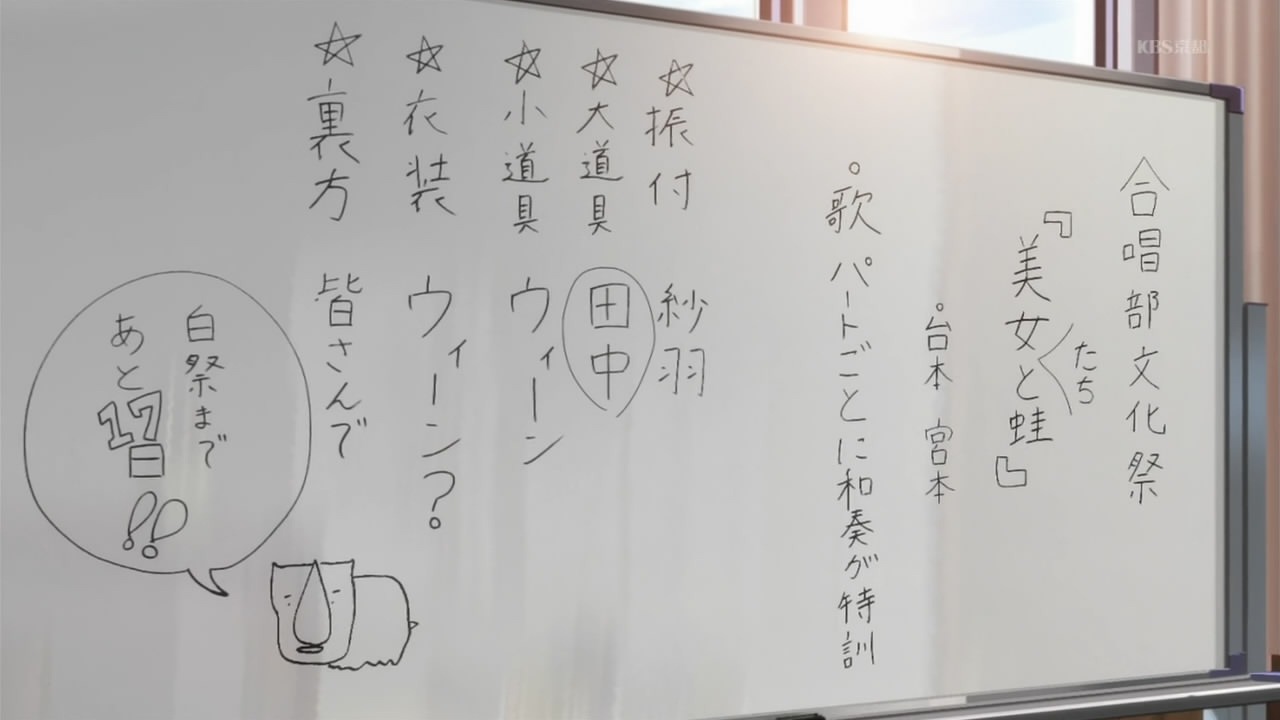 合唱部文化祭
『美女と蛙』
たち
。台本 宮本
。歌 パートごとに和奏が特訓
☆振付 紗羽
☆大道具 田中
☆小道具 ウィーン
☆衣装 ウィーン？
☆裏方 皆さんで
白祭まで
あと17日
!!
KBS京都